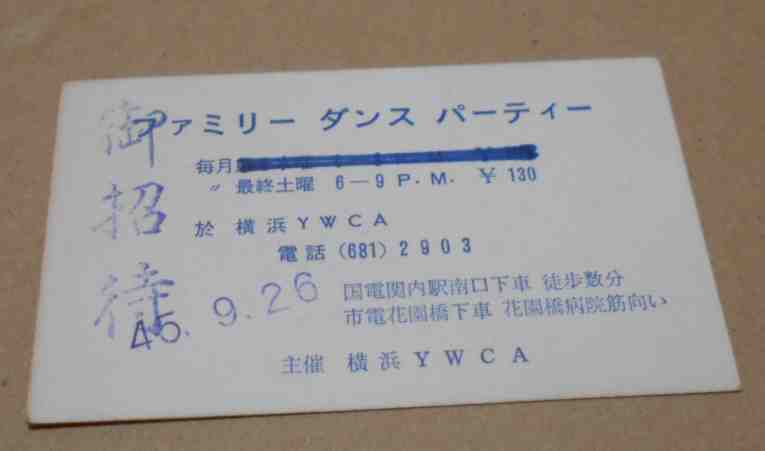 御招待
ファミリー ダンス パーティー
毎月
〃 最終土曜 6―9 P.M. ¥130
於 横浜YWCA
電話 (681) 2903
45.9.26
国電関内駅南口下車 徒歩数分
市電花園橋下車 花園橋病院筋向い
主催 横浜YWCA